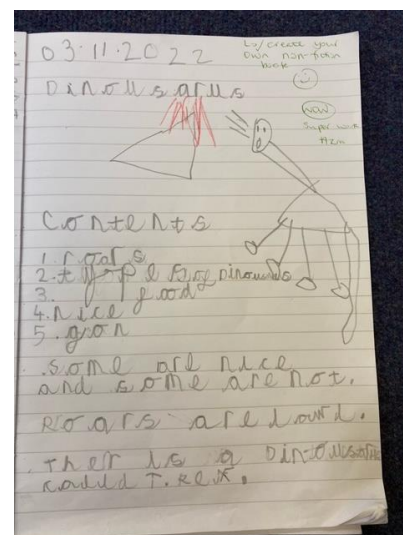 03.11.2022
Lo/create your
own non-fiction
book
Dinousarus
Wow
Super work
Contents
1. roars
2. types of Dinouses
3. food
4. nice
5. gon
.some are nice
and some are not.
Roars are loud.
.Ther is a Dinousarus
caulld T.rex.